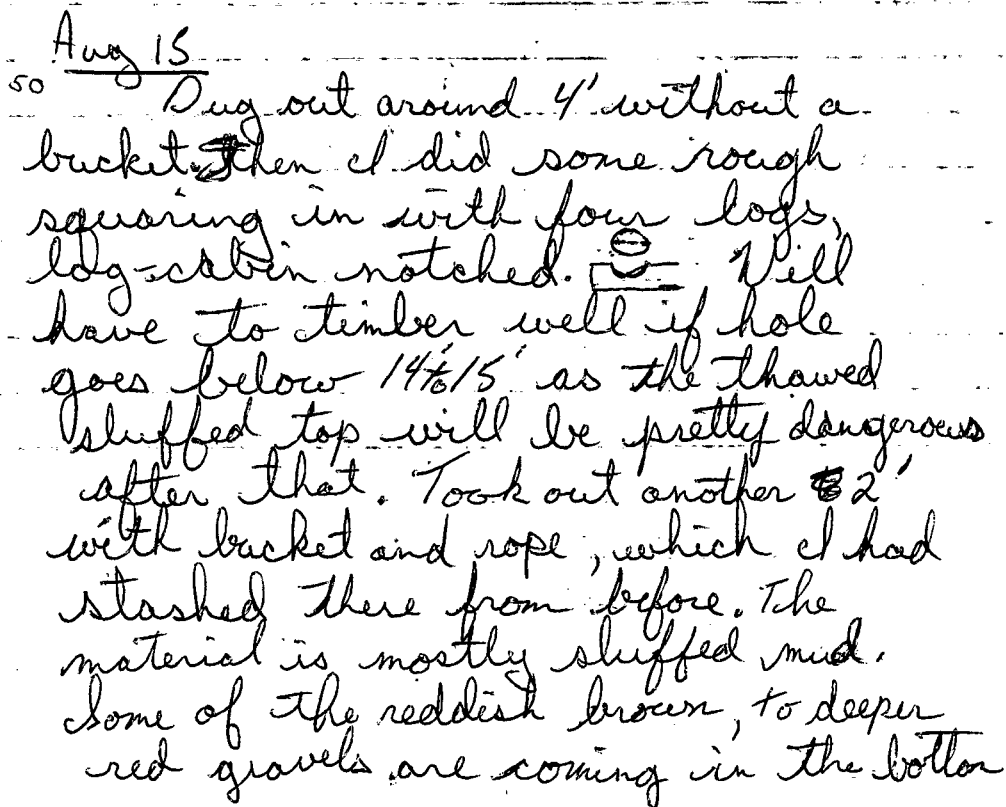 Aug 15
50
Dug out around 4' without a
bucket. Then I did some rough
squaring in with four logs,
log-cabin notched. Will
have to timber well if hole
goes below 14' to 15' as the thawed
sluffed top will be pretty dangerous
after that. Took out another 2'
with bucket and rope, which I had
stashed there from before. The
material is mostly sluffed mud.
Some of the reddish brown, to deeper
red gravels are coming in the bottom